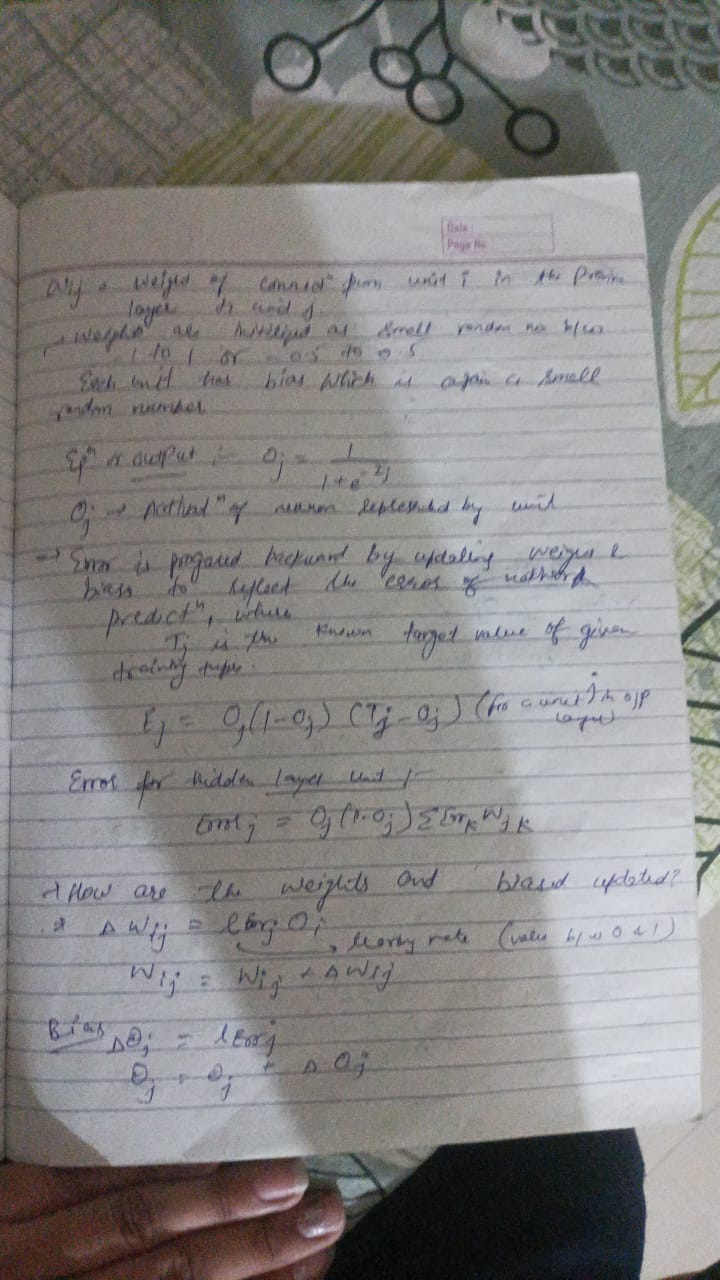 Date :
Page No
Wij → Weight of connectⁿ from unit i in the Previous
layer to unit j.
→ Weights are initialized as small random no b/w
-1 to 1 or -0.5 to 0.5
Each unit has bias which is again a small
random number.
Eqⁿ or output :- Oj = 1 / 1+e^-Ij
Oj → of neuron represented by unit
→ Error is backward by updating weights &
biass to reflect the error of network
predictⁿ, where
Tj is the known target value of given
training tuple.
Ej = Oj(1-Oj) (Tj-Oj) (for a unit j in o/p layer)
Error for hidden layer unit j-
Errorj = Oj(1-Oj) Σ Errk Wjk
→ How are the weights and biased updated?
→ Δ Wij = l Errj Oi
→ learning rate (value b/w 0 & 1)
Wij = Wij + ΔWij
Bias ΔƟj = l Errj
Ɵj = Ɵj + Δ Ɵj